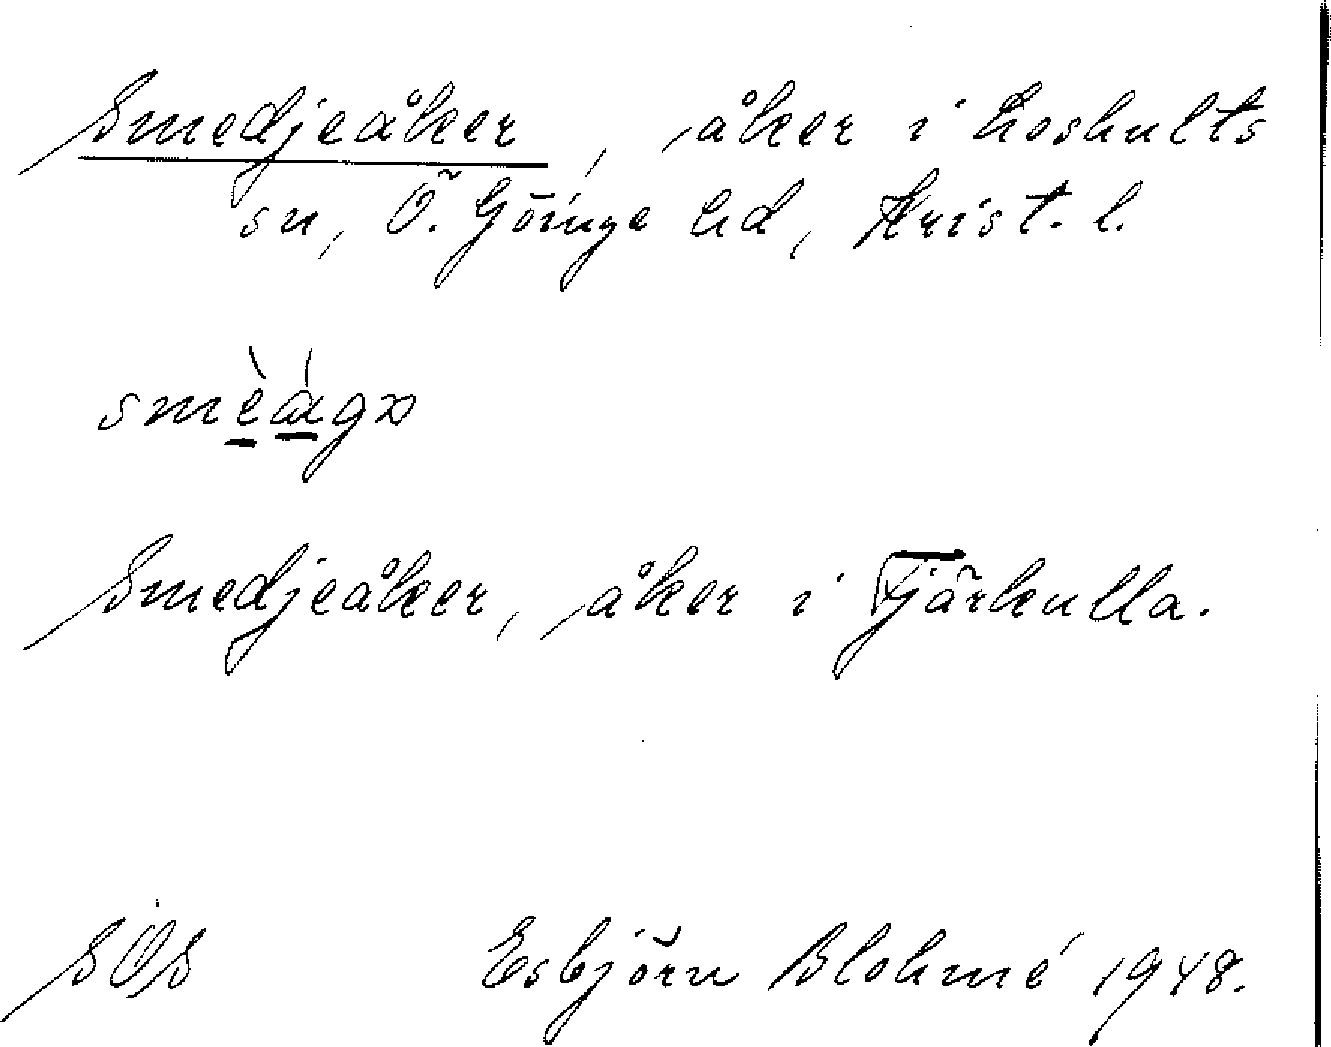 Smedjeåker, åker i Loshults
sn, Ö. Göinge hd, Krist. l.
Smedjeåker, åker i Tjärkulla.
SOS Esbjörn Blohmé 1948.